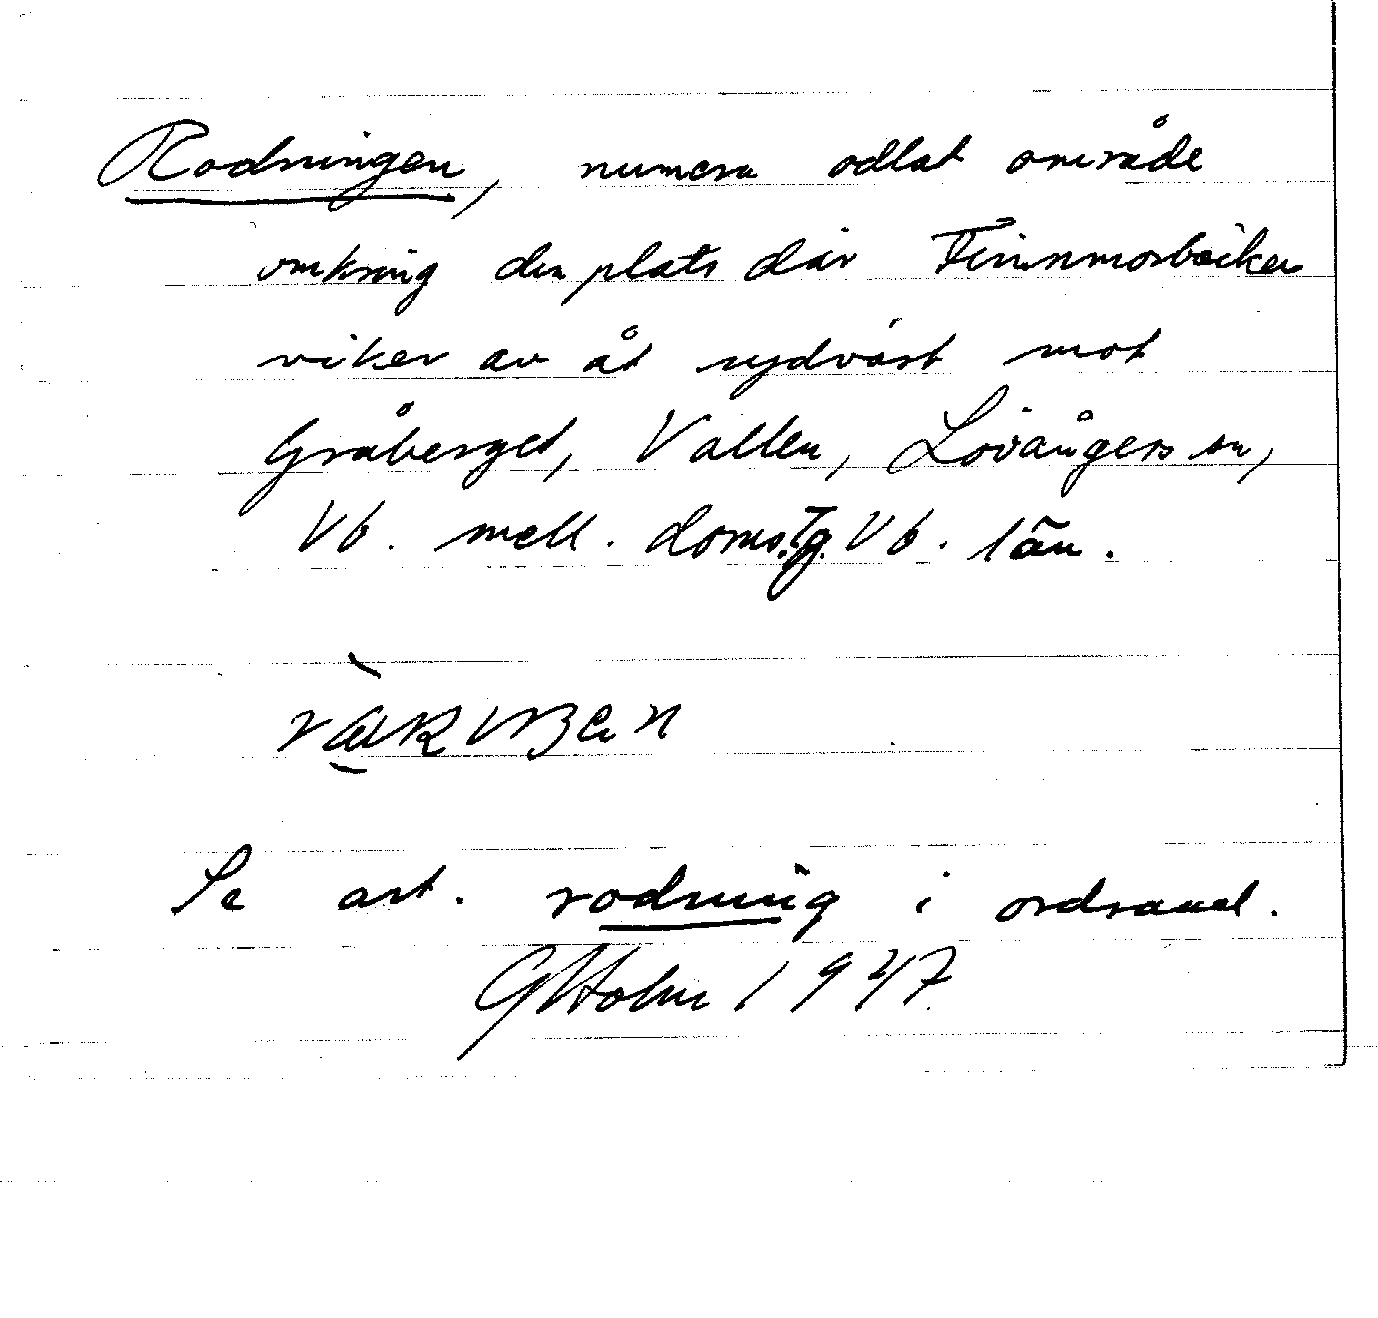 Rodningen, numera odlat område
omkring den plats där Finnmorbäcken
viker av åt sydväst mot
Gråberget, Vallen, Lövångers sn,
Vb. mell. doms.Tg. Vb. län.
Se art. rodning i ordsaml.
GHolm 1947.